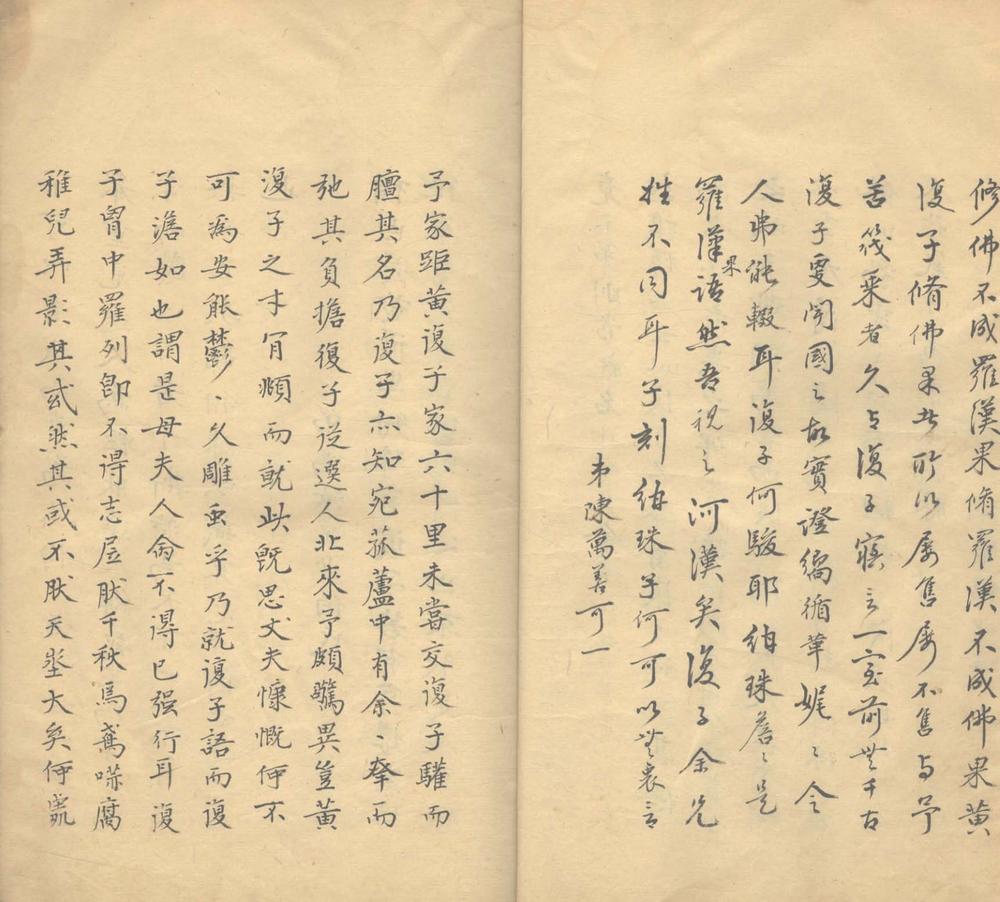 修佛不成羅漢果脩羅漢不成佛果黃
復子脩佛果此所以屡售屡不售与予
苦筏乗者久与復子寤言一室前無千古
復子雯間國之故實證編循華娓〻令
人弗能輟耳復子何駿耶紺珠麿〻是
羅漢果語然吾祝之河漢矣復子余兄
姓不同耳子刻紺珠子何可以無衷言
弟陳萬善可一
予家距黃復子家六十里未嘗交復子驩而
膻其名乃復子亦知宛菰蘆中有余〻舉而
弛其負擔復子従選人北來予頗驚異豈黃
復子之才肎頫而就此旣思丈夫慷慨何不
可爲安能鬱〻久雕䖝乎乃就復子語而復
子澹如也謂是母夫人命不得已强行耳復
子胷中羅列卽不得志屈肰千秋焉鳶嚇腐
稚兒弄影其貳然其或不肰天壑大矣何處